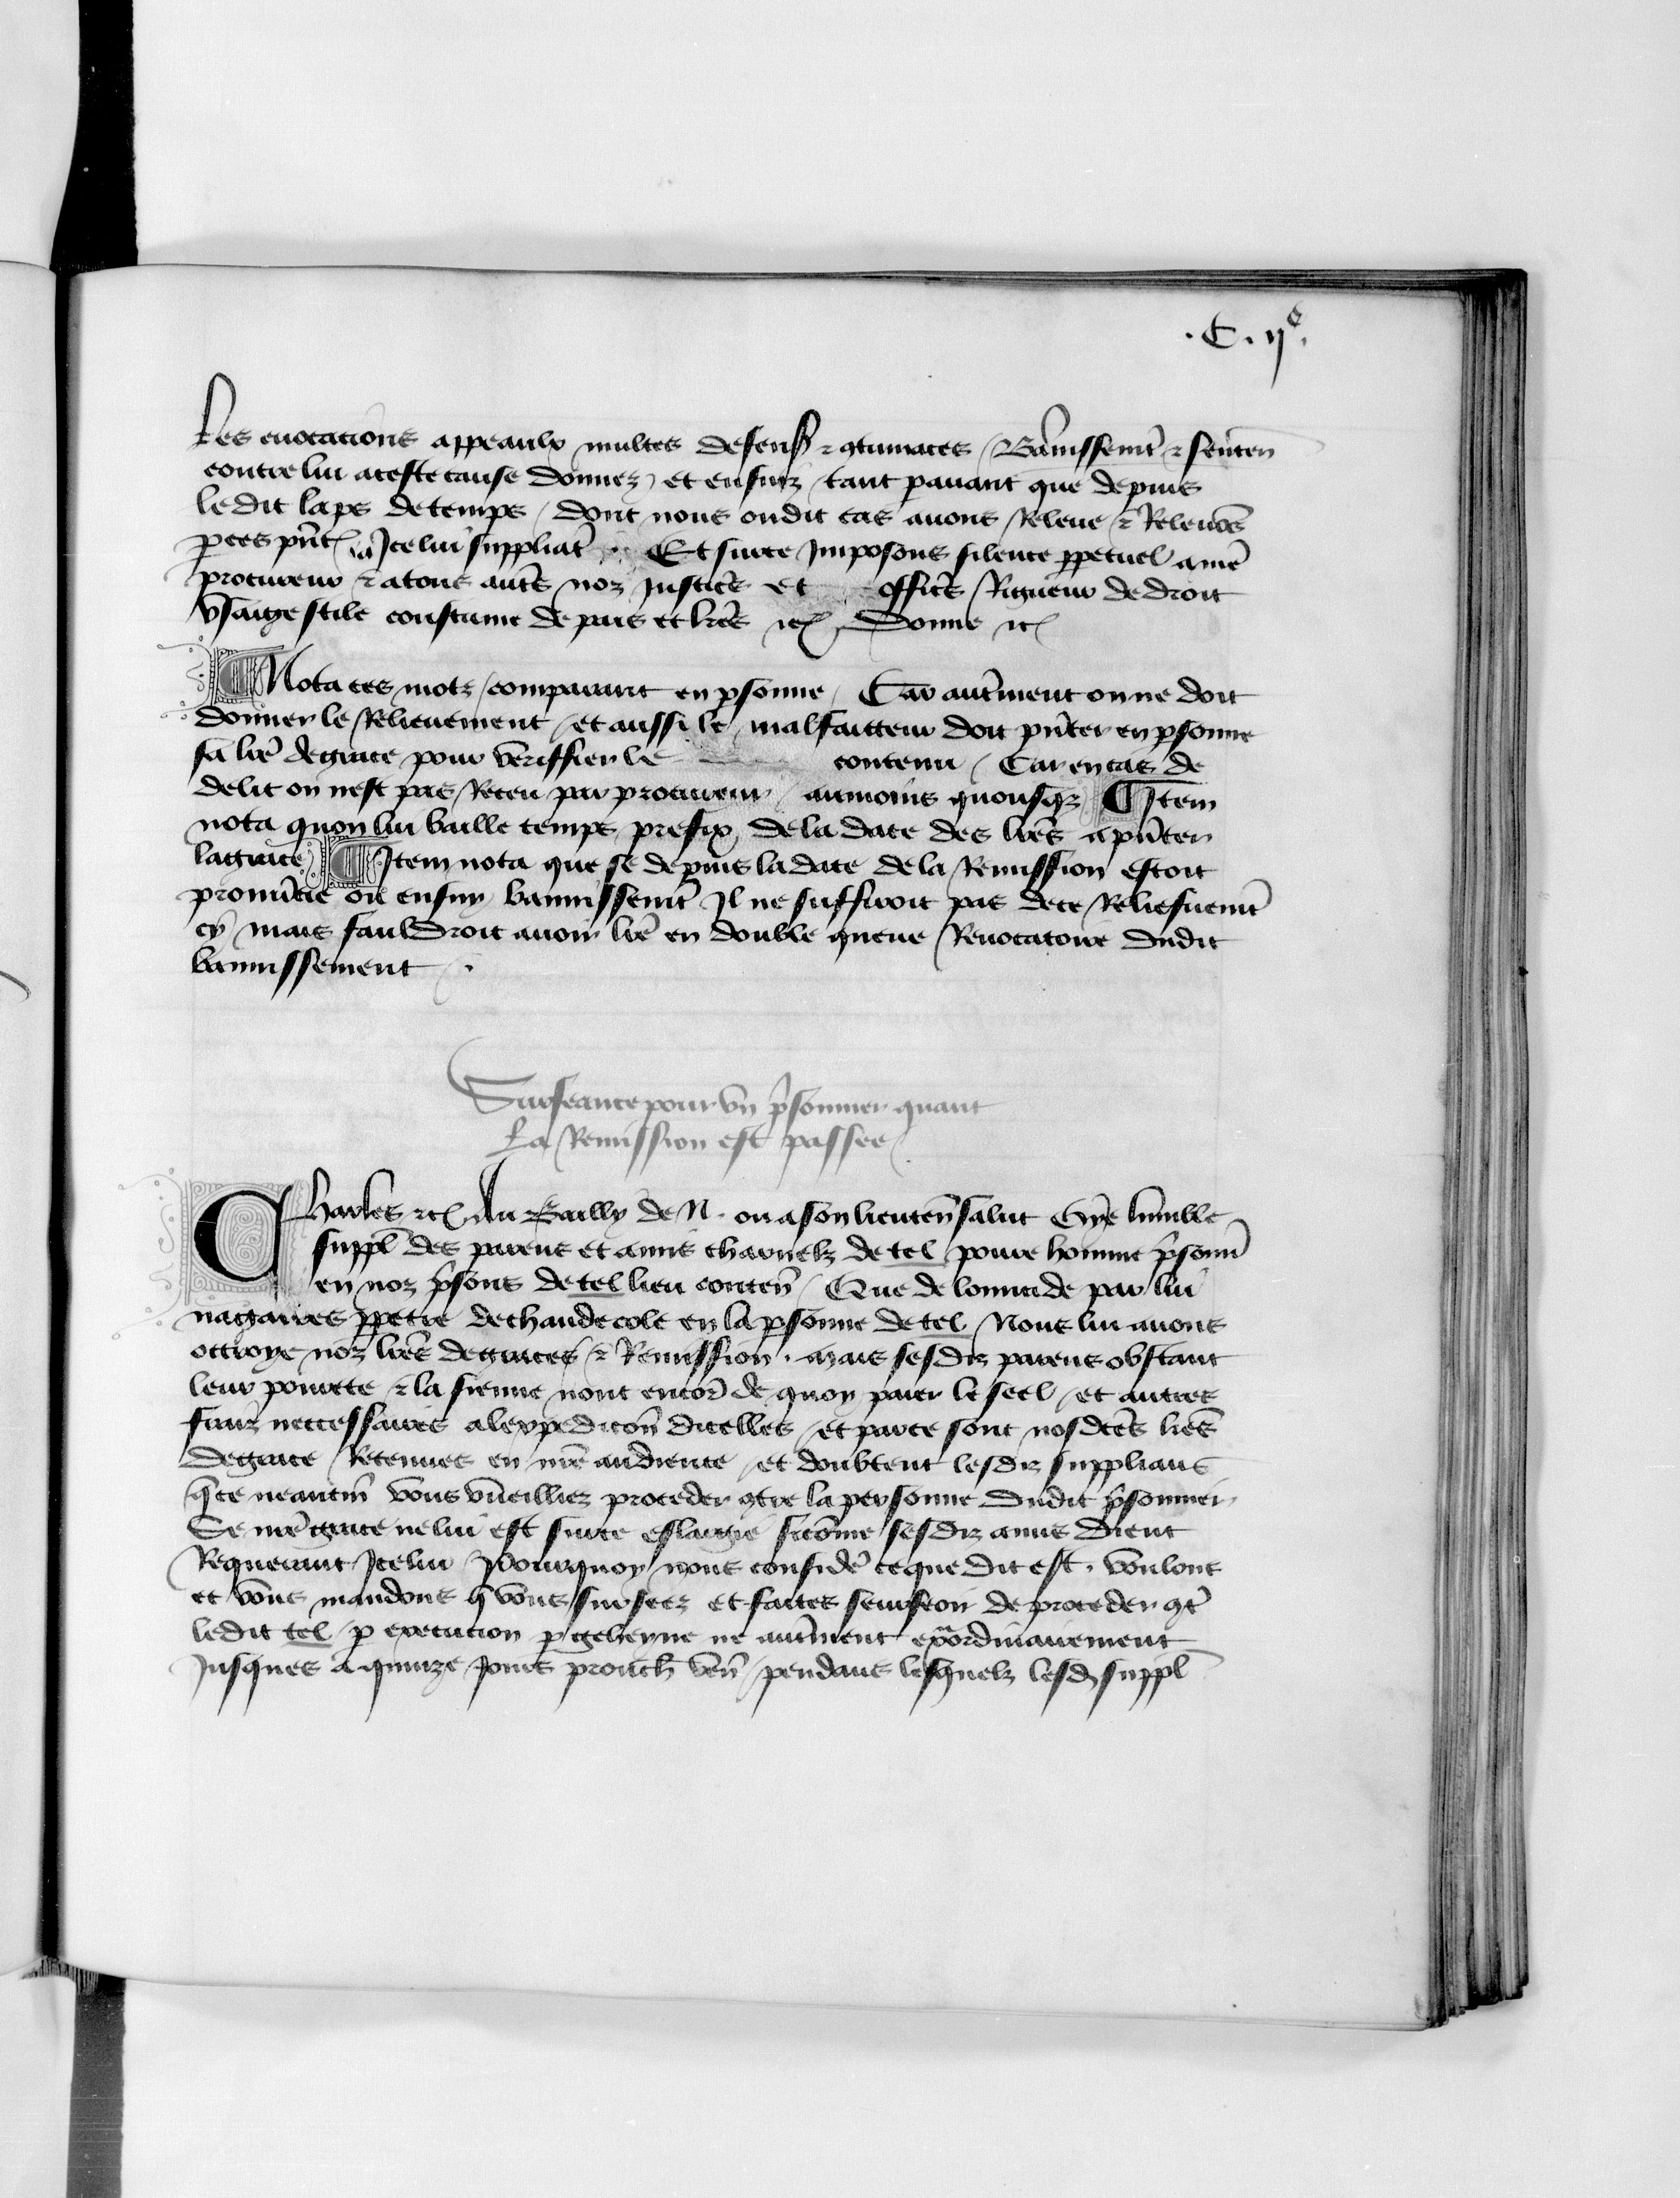 .C.ije.
Les euocacions appeaulx multes defenses & gtumaces Bānissemt & senten
contre lui a ceste cause donnez et ensuiz tant pauant que depuis
ledit laps de temps dont nous oudit cas auons Releue & Releuōs
p ces pñt Icelui suppliāt Et surce Imposons silence ppetuel a nrē
procureur & a tous autrēs noz Justicrs et officrs Rigueur de droit
vsaige stile coustume de pais et lrēs etc Donne etc
Nota ces motz comparant en psonne Car autrēment on ne doit
donner le Relieuement et aussi le malfaitteur doit pñter en psonne
sa lrē de grace pour veriffier le contenu Car en cas de
delit on nest pas Receu par procureur aumoins quousqz Item
nota quon lui baille temps prefix de la date des lrēs a pñter
la grace Item nota que se depuis la date de la Remission estoit
pronūcie ou ensuy bannissemt Il ne suffiroit pas de ce Reliefuemt
cy mais fauldroit auoir lrē en double queue Reuocatoire dudit
bannissement .
Surseance pour vn p̄sonnier quant
La Remission est passee
Charles etc Au Bailly de N. ou a son lieuten̄ salut Oye lumble
suppl des parens et amis charnelz de tel poure homme p̄sonn̄
en noz p̄sons de tel lieu conten̄ Que de lomicide par lui
nagaires ppetre de chaude cole en la psonne de tel Nous lui auons
ottroye noz lrēs de graces & Remission . mais sesdiz parens obstant
leur pourete & la sienne nont encor̄ de quoy paier le seel et autres
fraiz neccessaires a lexpedicōn dicelles et par ce sont nosdctēs lrēs
de grace Retenues en nrē audience et doubtent lesdiz supplians
q̄ ce neantm̄ vous vueilliez proceder gtre la personne dudit p̄sonnier
Se nrē grace ne lui est surce eslargie sicōme sesdiz amis dient
Requerant Icelui Pourquoy nous consider̄ ce que dit est . voulons
et vous mandons q̄ vous surseez et faites surseoir de proceder gtr̄
ledit tel p execucion p geheyne ne autrēment exāordinairement
Jusques a quinze Jours prouch̄ ven̄ pendans lesquelz lesd suppl